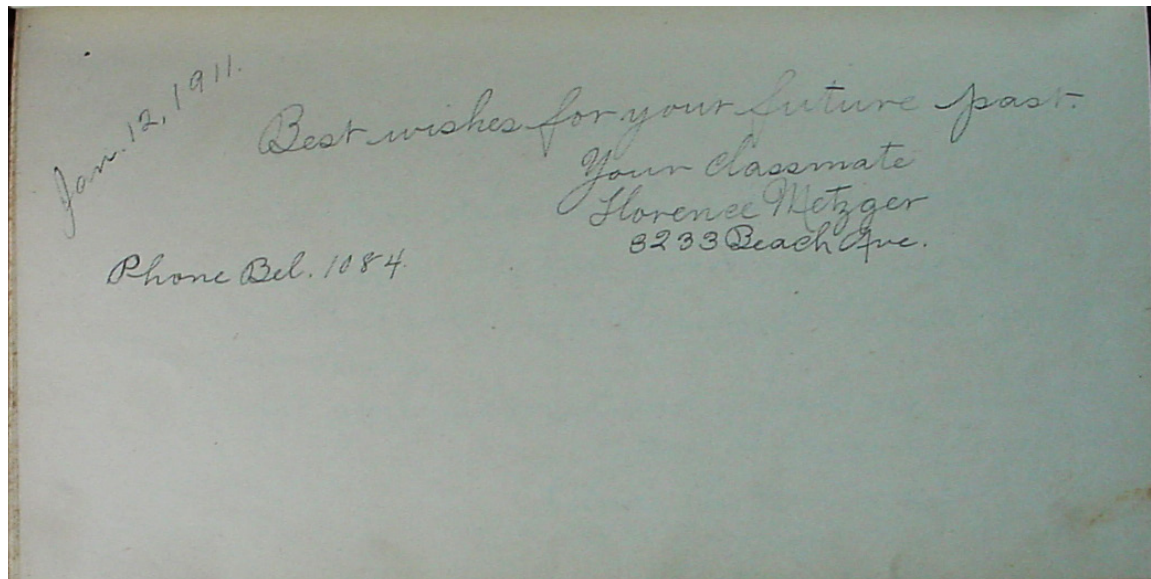 Jan. 12, 1911.
Best wishes for your future past.
Your classmate
Florence Metzger
3233 Beach Ave.
Phone Bel. 1084.